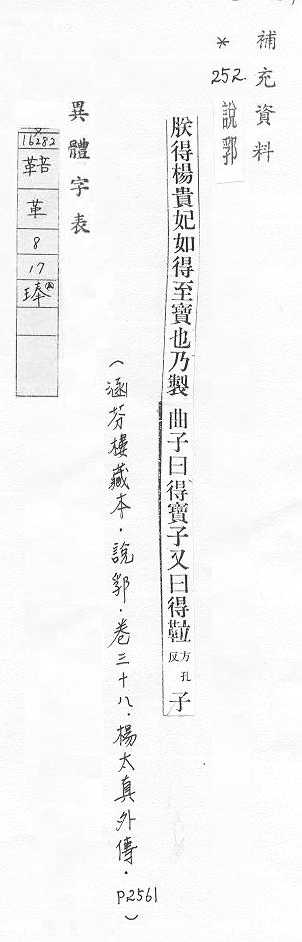 補充資料
*
252.
說郛
朕得楊貴妃如得至寶也乃製曲子曰得寶子又曰得鞛方孔反子
(涵芬樓藏本·說郛·卷三十八·楊太真外傳·P2561)
異體字表
16282
鞛
革
8
17
琫